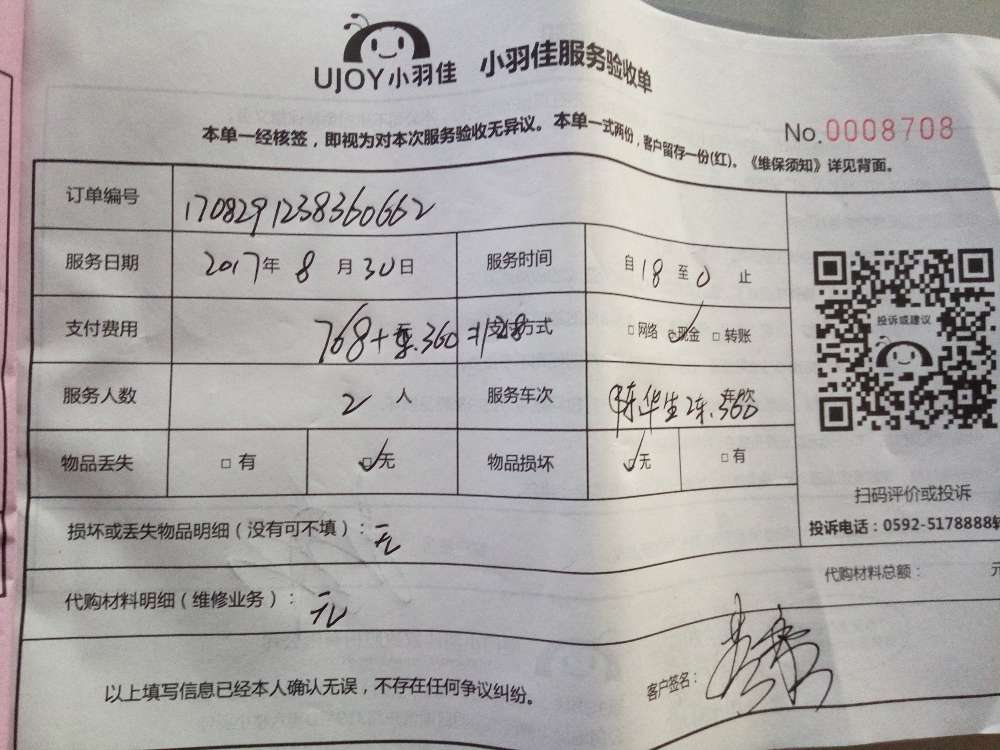 UJOY小羽佳 小羽佳服务验收单
No.0008708
本单一经核签，即视为对本次服务验收无异议。本单一式两份，客户留存一份(红)。《维保须知》详见背面。
订单编号 1708291238360662
服务日期 2017年 8 月 30日 服务时间 自 18 至 0 止
支付费用 768+车.360=1128 支付方式 □网络 ☑现金 □转账
投诉或建议
服务人数 2 人 服务车次 陈华生2车.360 车次
物品丢失 □有 ☑无 物品损坏 ☑无 □有
扫码评价或投诉
投诉电话：0592-5178888转
损坏或丢失物品明细（没有可不填）：无
代购材料总额： 元
代购材料明细（维修业务）：无
以上填写信息已经本人确认无误，不存在任何争议纠纷。
客户签名：